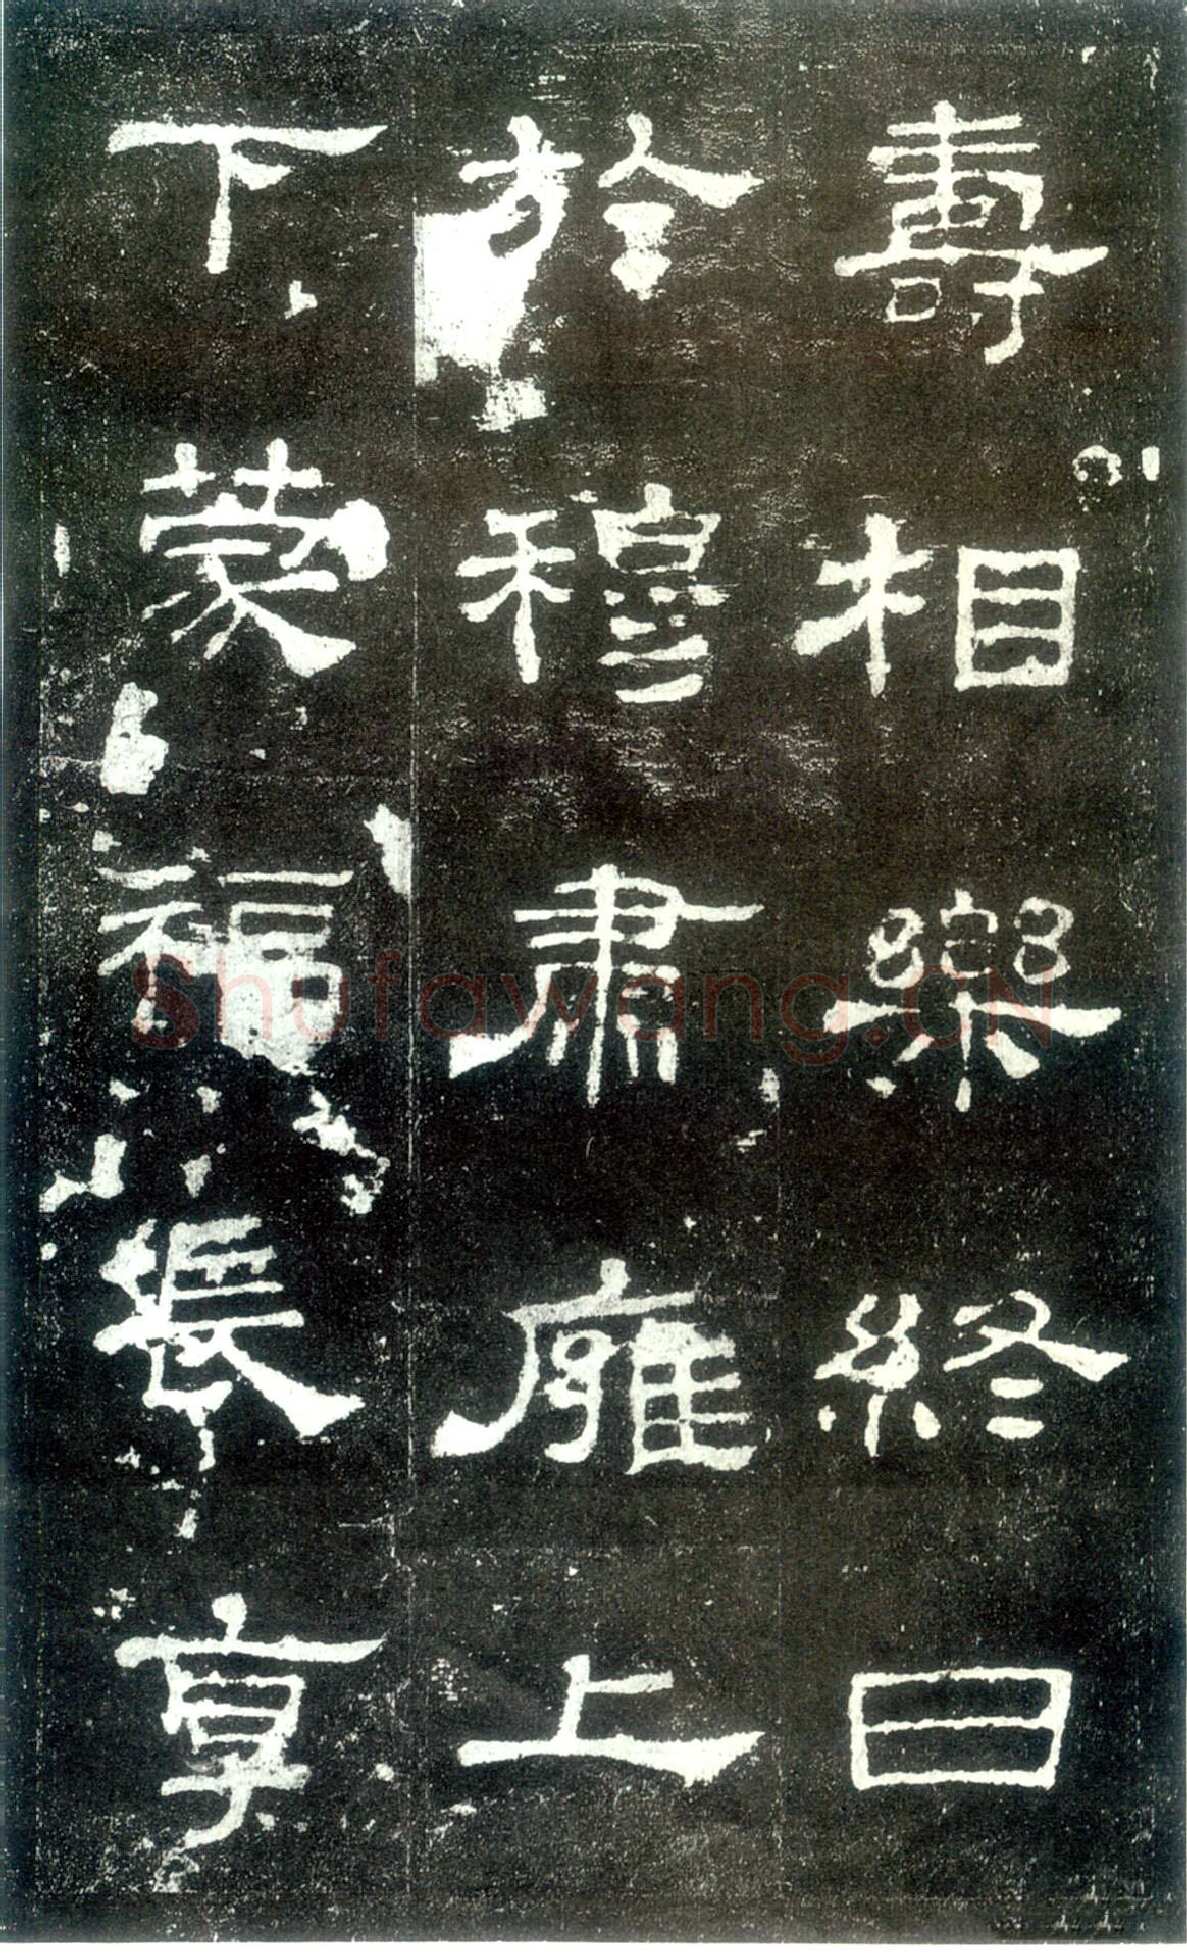 壽相樂終日
於穆肅雍上
下蒙福長享
Shufawang.CN